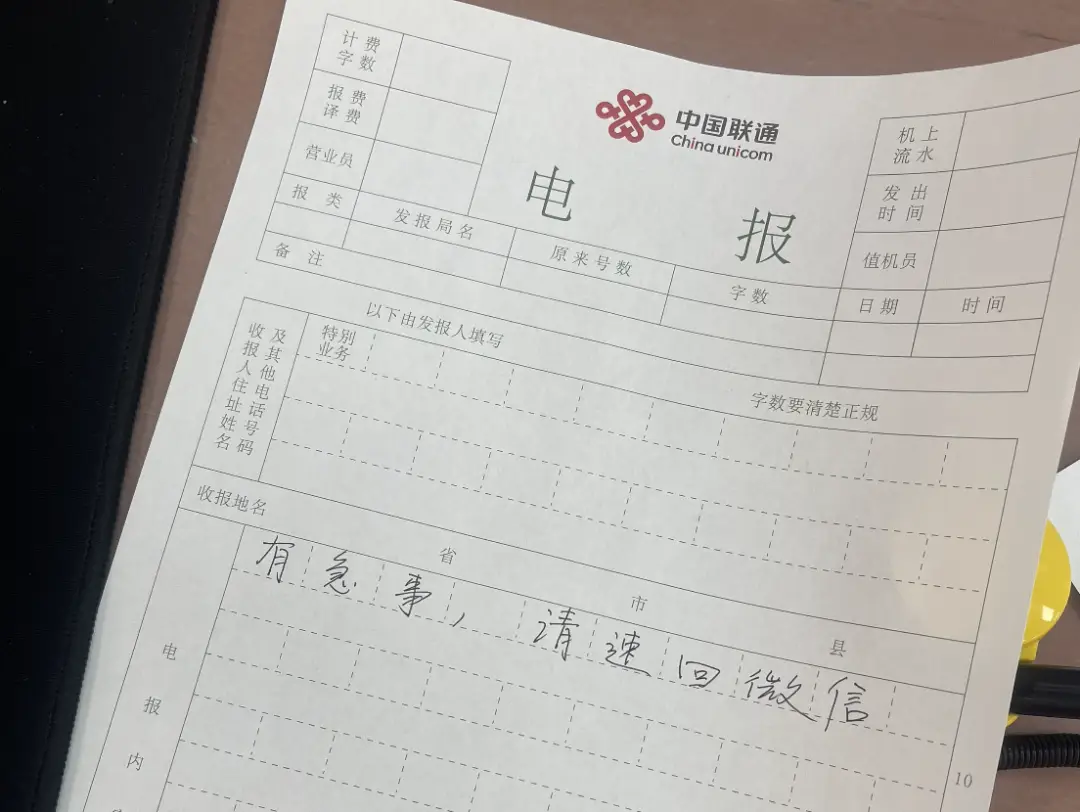 计费字数
报费译费
营业员
报类
发报局名
原来号数
字数
备注
中国联通
China unicom
电报
机上流水
发出时间
值机员
日期
时间
以下由发报人填写
字数要清楚正规
收报人住址姓名
及其他电话号码
特别业务
收报地名
省
市
县
有急事，请速回微信
电报内
10